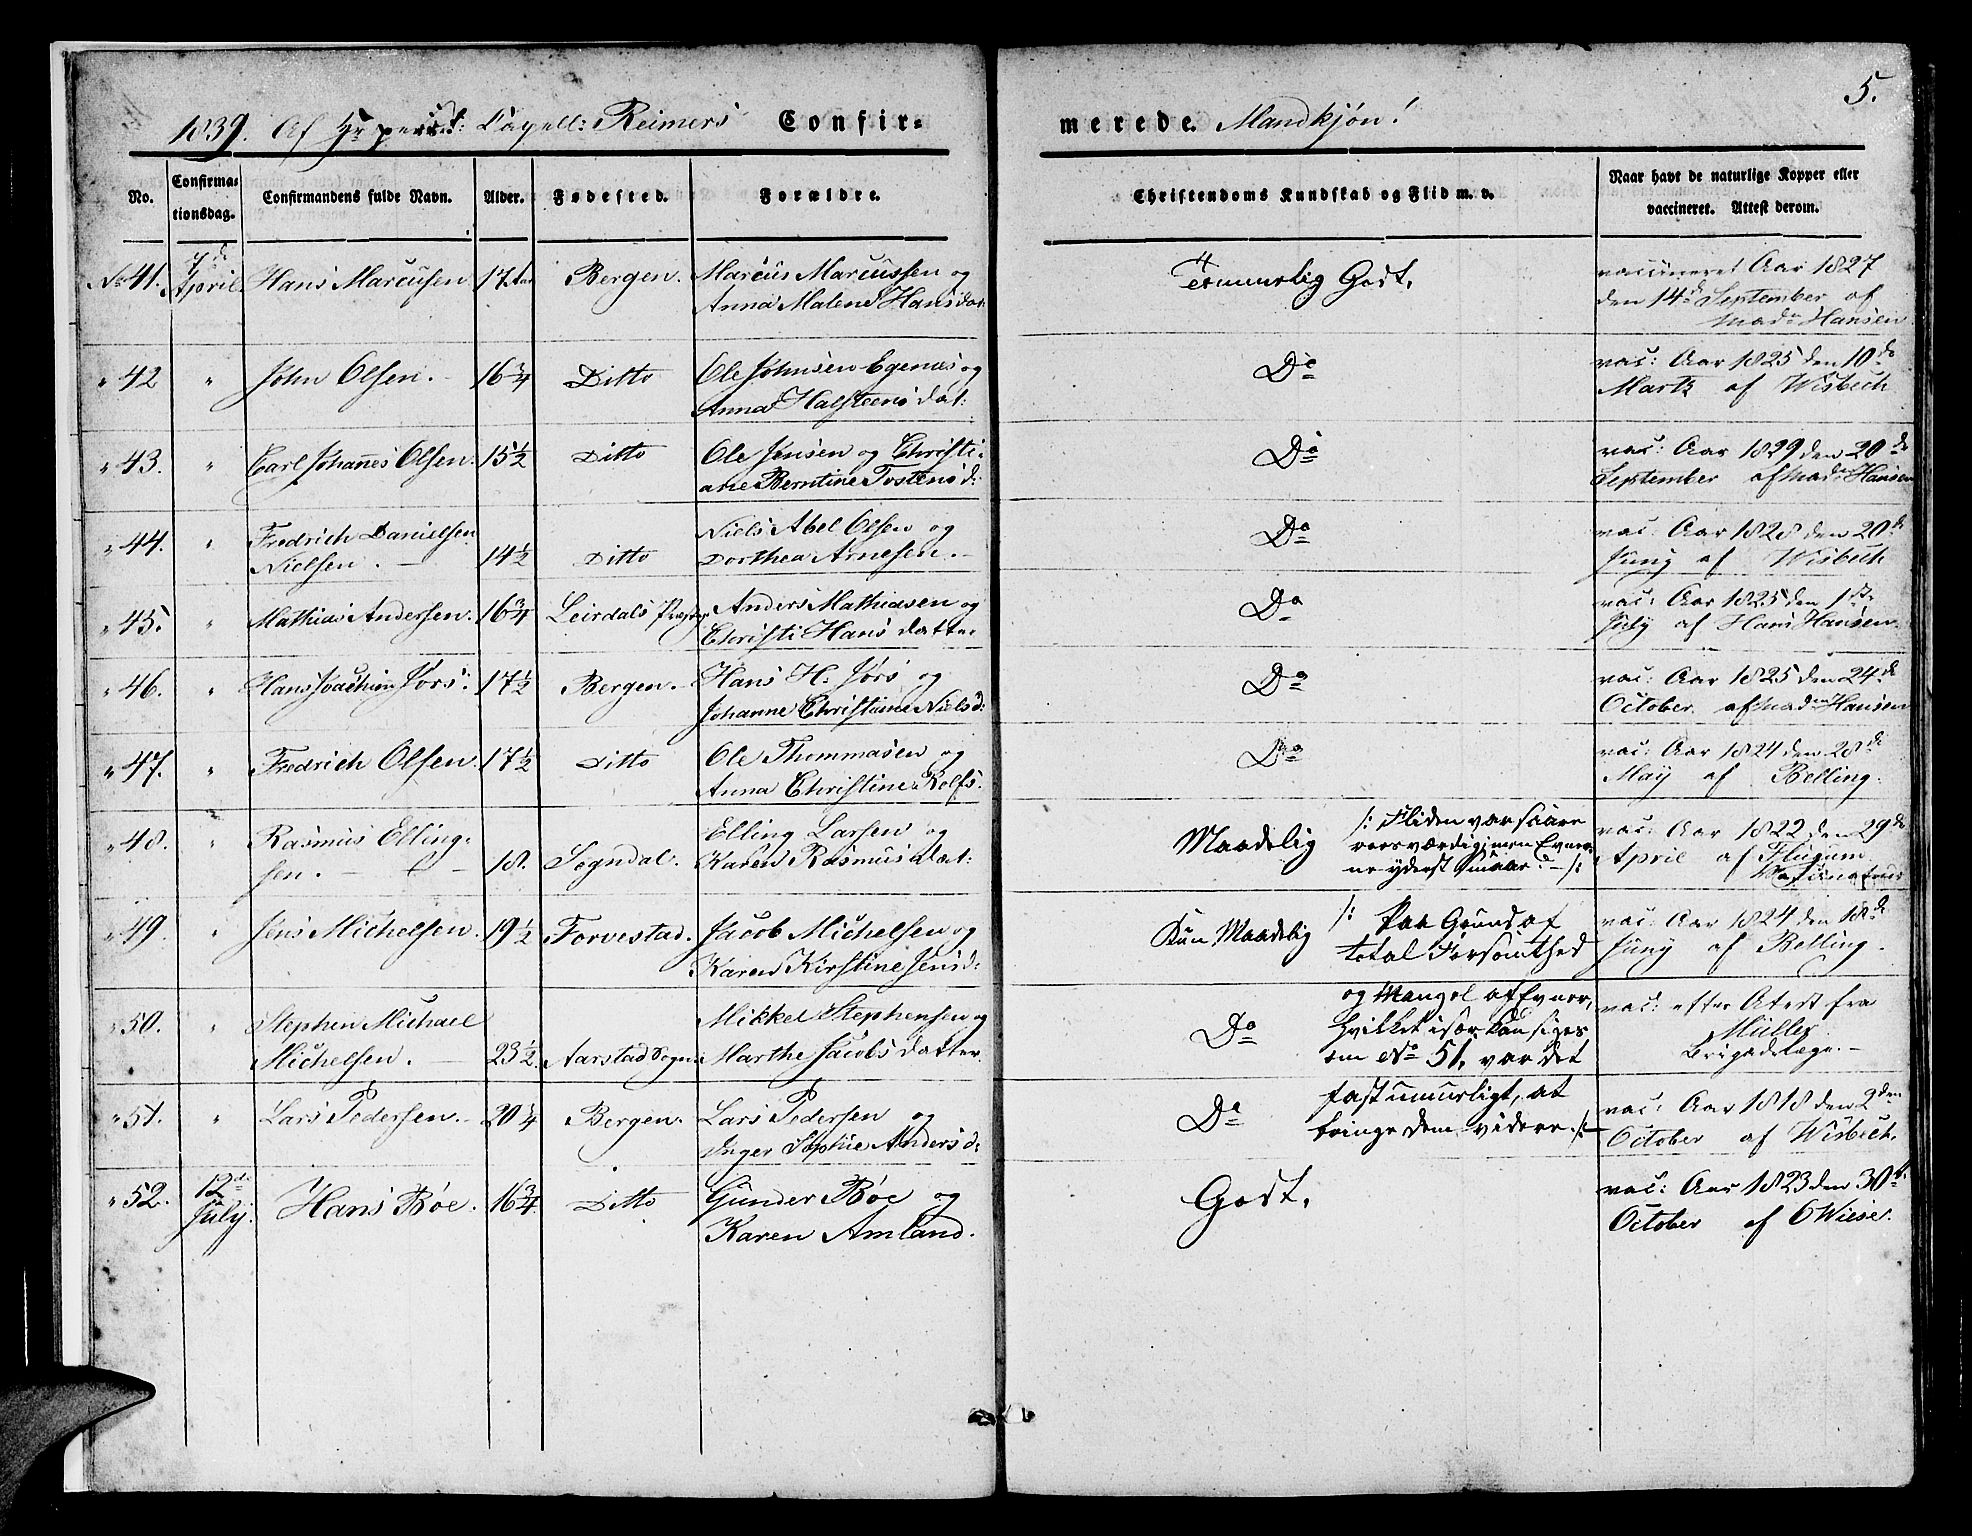 5.
1839. Af Hr Capell: Reimers Confir-
merede. Mandkjøn!
No. Confirma- tionsdag. Confirmandens fulde Navn. Alder. Fødested. Forældre. Christendoms Kundskab og Flid m. v. Naar havt de naturlige Kopper eller
vaccineret. Attest derom.
No 41. 7de April Hans Marcusen 17 Aar Bergen. Marcus Marcussen og
Anna Malene Hansdat: Temmelig Godt. vaccineret Aar 1827
den 14de September af
Made Hansen
" 42 " John Olsen. 16 3/4 Ditto Ole Johnsen Egenæs og
Anna Halsteensdat: Do vac: Aar 1825 den 10de
Martz af Wisbech
" 43. " Carl Johannes Olsen. 15 1/2 Ditto Ole Jensen og Christi-
ane Berntine Tostensd: Do vac: Aar 1829 den 20de
September af Made Hansen
" 44. " Fredrich Danielsen
Nielsen. 14 1/2 Ditto Niels Abel Olsen og
Dorthea Arnesen. Do vac: Aar 1828 den 20de
Juny af Wisbech
" 45. " Mathias Andersen. 16 3/4 Leirdals Præstg: Anders Mathiasen og
Christi Hansdatter Do vac: Aar 1825 den 1ste
July af Hans Hansen.
" 46. " Hans Joachim Jørs. 17 1/2 Bergen. Hans H: Jørs og
Johanne Christine Nielsd: Do vac: Aar 1825 den 24de
October af Made Hansen
" 47. " Fredrich Olsen. 17 1/2 Ditto Ole Thommasen og
Anna Christine Rolfs. Do vac: Aar 1824 den 28de
May af Belling.
" 48. " Rasmus Elling-
sen. 18. Sogndal. Elling Larsen og
Karen Rasmusdat: Maadelig /: Fliden var saare
roesværdig men Evner-
ne yderst smaae :/ vac: Aar 1822 den 29de
April af Flugum
" 49. " Jens Michelsen. 19 1/2 Forvestad. Jacob Michelsen og
Karen Kirstine Jensd: Kun Maadelig /: Paa Grund af
total Forsømthed vac: Aar 1824 den 18de
Juny af Belling.
" 50. " Stephen Michael
Michelsen. 23 1/2 Aarstad Sogn. Mikkel Stephensen og
Marthe Jacobsdatter Do og Mangel af Evner,
hvilket især kan siges
om No 51, var det vac: efter Atest fra
Müller
Brigadelæge.
" 51. " Lars Pedersen. 20 1/4 Bergen. Lars Pedersen og
Inger Sophie Andersd: Do fast umuligt, at
bringe dem videre :/ vac: Aar 1818 den 2den
October af Wisbech.
" 52. 12de July. Hans Bøe. 16 3/4 Ditto Gunder Bøe og
Karen Amland. Godt. vac: Aar 1823 den 30te
October af Wiese.